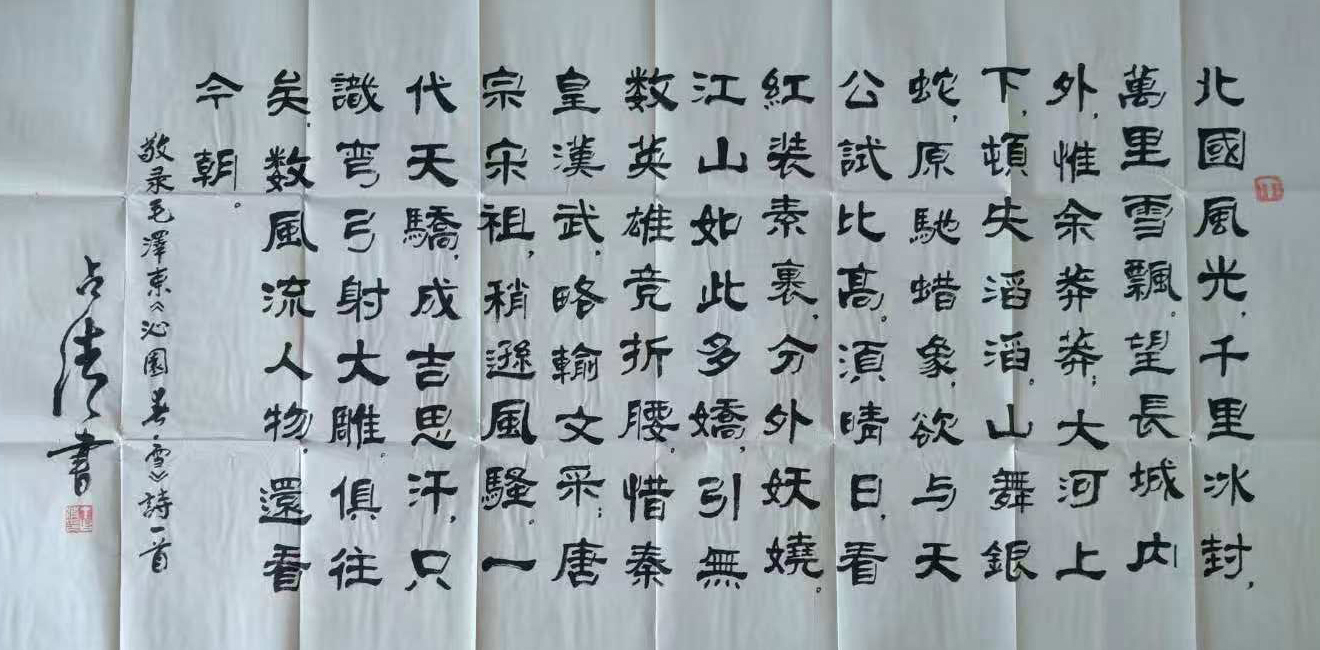 北國風光，千里冰封，
萬里雪飄。望長城内
外，惟余莽莽；大河上
下，頓失滔滔。山舞銀
蛇，原馳蜡象，欲与天
公試比高。須晴日，看
紅装素裹，分外妖嬈。
江山如此多嬌，引無
数英雄竞折腰。惜秦
皇漢武，略輸文采；唐
宗宋祖，稍遜風騷。一
代天驕，成吉思汗，只
識弯弓射大雕。俱往
矣，数風流人物，還看
今朝。
敬录毛澤東《沁園春·雪》詩一首
占 書